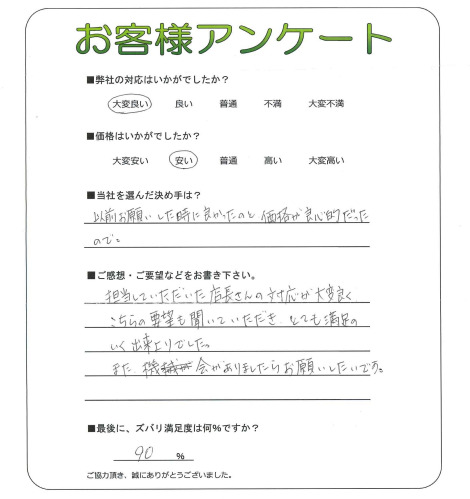 お客様アンケート
■弊社の対応はいかがでしたか？
大変良い 良い 普通 不満 大変不満
■価格はいかがでしたか？
大変安い 安い 普通 高い 大変高い
■当社を選んだ決め手は？
以前お願いした時に良かったのと価格が良心的だった
ので。
■ご感想・ご要望などをお書き下さい。
担当していただいた店長さんの対応が大変良く
こちらの要望も聞いていただき、とても満足の
いく出来上りでした。
また、機会がありましたらお願いしたいです。
■最後に、ズバリ満足度は何％ですか？
90 ％
ご協力頂き、誠にありがとうございました。